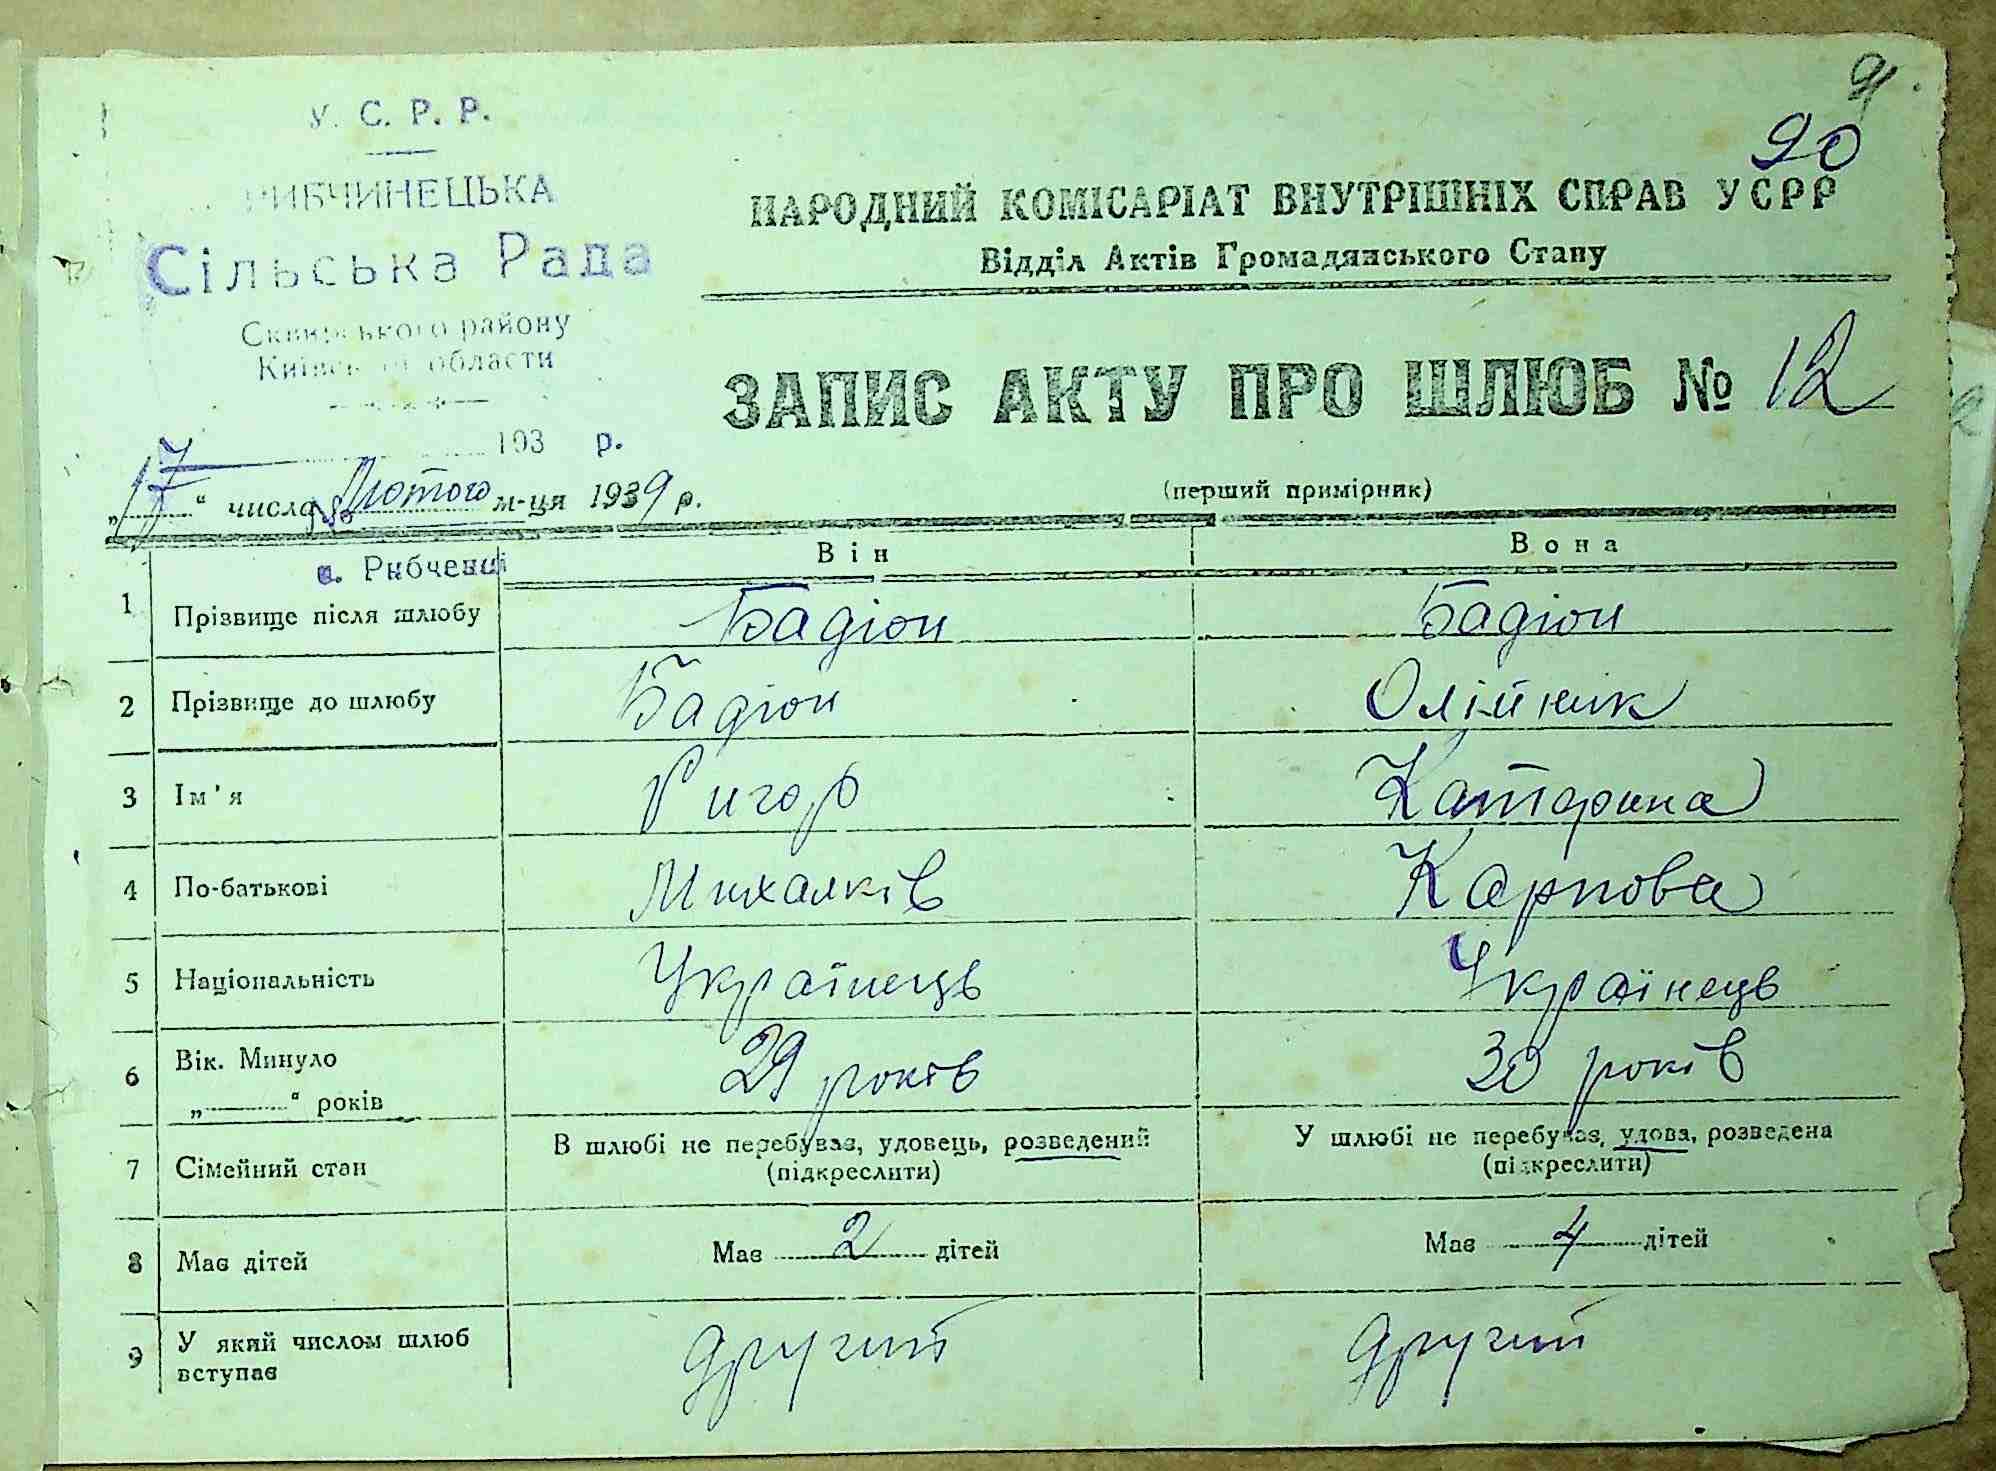 У. С. Р. Р.
РИБЧИНЕЦЬКА
Сільська Рада
Сквирського району
Київської области
7 193 р.
„17“ числа Лютого м-ця 1939 р.
с. Рибченці
90
НАРОДНИЙ КОМІСАРІАТ ВНУТРІШНІХ СПРАВ УСРР
Відділ Актів Громадянського Стану
ЗАПИС АКТУ ПРО ШЛЮБ № 12
(перший примірник)
Він Вона
1 Прізвище після шлюбу Бадіон Бадіон
2 Прізвище до шлюбу Бадіон Олійник
3 Ім'я Ригор Катерина
4 По-батькові Михалків Карпова
5 Національність Українець Українець
6 Вік. Минуло 29 років 30 років
„ “ років
7 Сімейний стан В шлюбі не перебував, удовець, розведений У шлюбі не перебував, удова, розведена
(підкреслити) (підкреслити)
8 Має дітей Має 2 дітей Має 4 дітей
9 У який числом шлюб другий другий
вступає